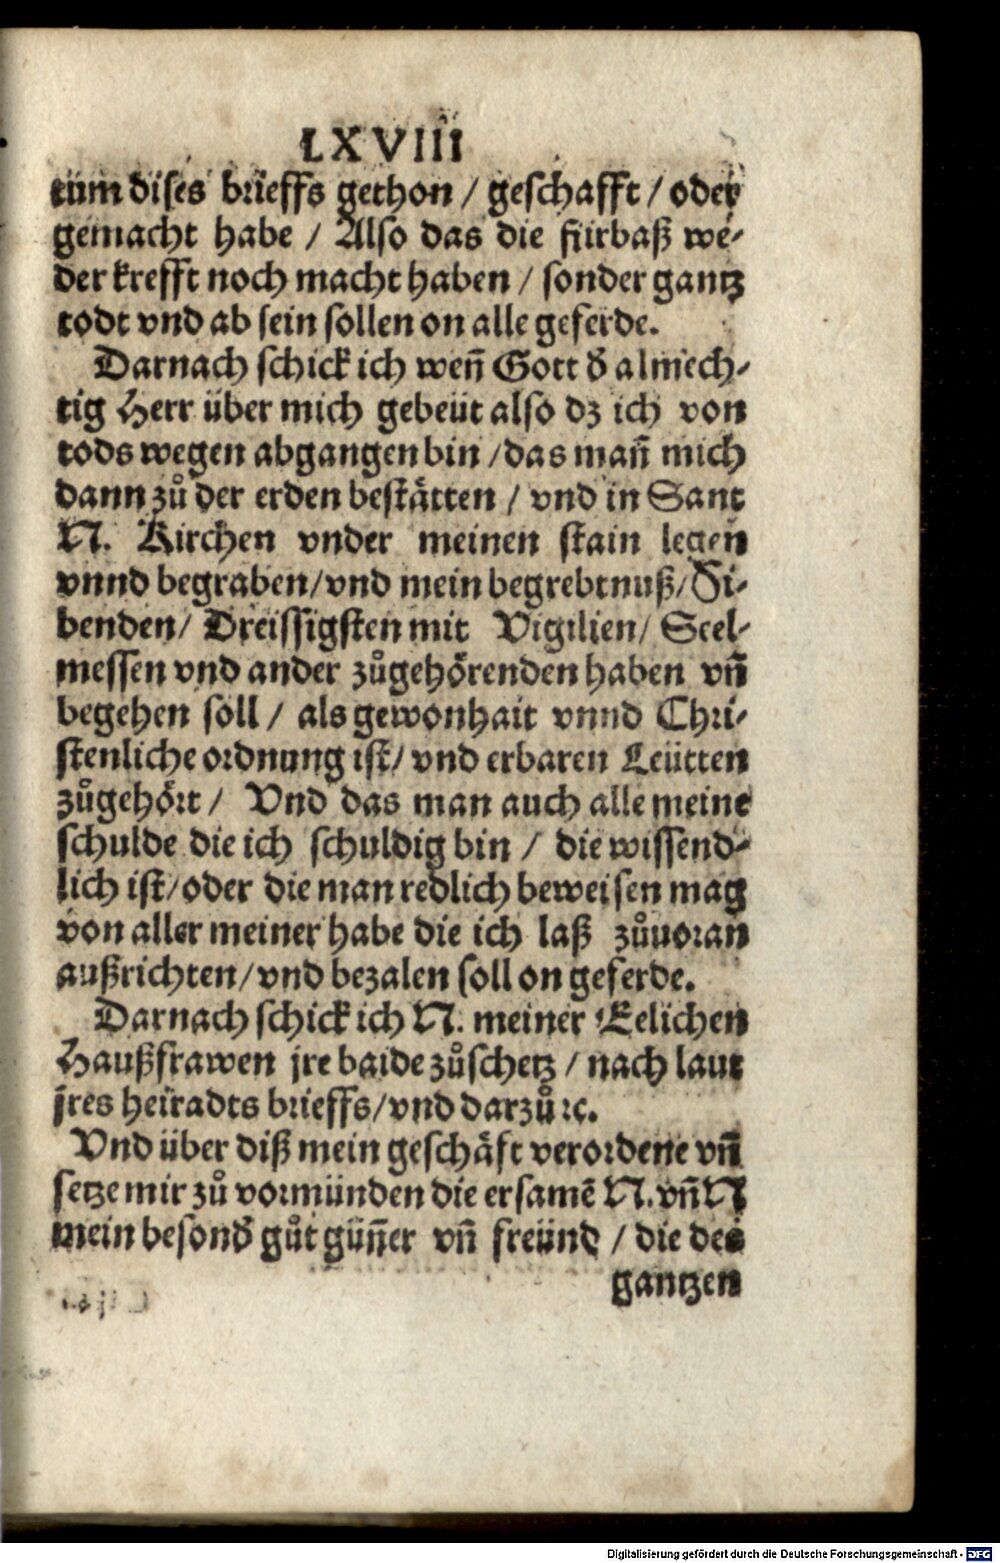 LXVIIII
tum dises brieffs gethon / geschafft / oder
gemacht habe / Also das die fürbaß we-
der krefft noch macht haben / sonder gantz
todt vnd ab sein sollen on alle geferde.
Darnach schick ich weñ Gott d̕ almech-
tig Herr über mich gebeüt also dz ich von
tods wegen abgangen bin / das mañ mich
dann zů der erden bestätten / vnd in Sant
N. Kirchen vnder meinen stain legen
vnnd begraben / vnd mein begrebtnuß / Si-
benden / Dreissigsten mit Vigilien / Seel-
messen vnd ander zůgehörenden haben vñ
begehen soll / als gewonhait vnnd Chri-
stenliche ordnung ist / vnd erbaren Leütten
zůgehört / Vnd das man auch alle meine
schulde die ich schuldig bin / die wissend-
lich ist / oder die man redlich beweisen mag
von aller meiner habe die ich laß zůuoran
außrichten / vnd bezalen soll on geferde.
Darnach schick ich N. meiner Eelichen
Haußfrawen jre baide zůschetz / nach laut
jres heiradts brieffs / vnd darzů ꝛc.
Vnd über diß mein geschäft verordene vñ
setze mir zů vormünden die ersamē N. vñ N
mein besond̕ gůt güñer vñ freünd / die des
gantzen
Digitalisierung gefördert durch die Deutsche Forschungsgemeinschaft - DFG